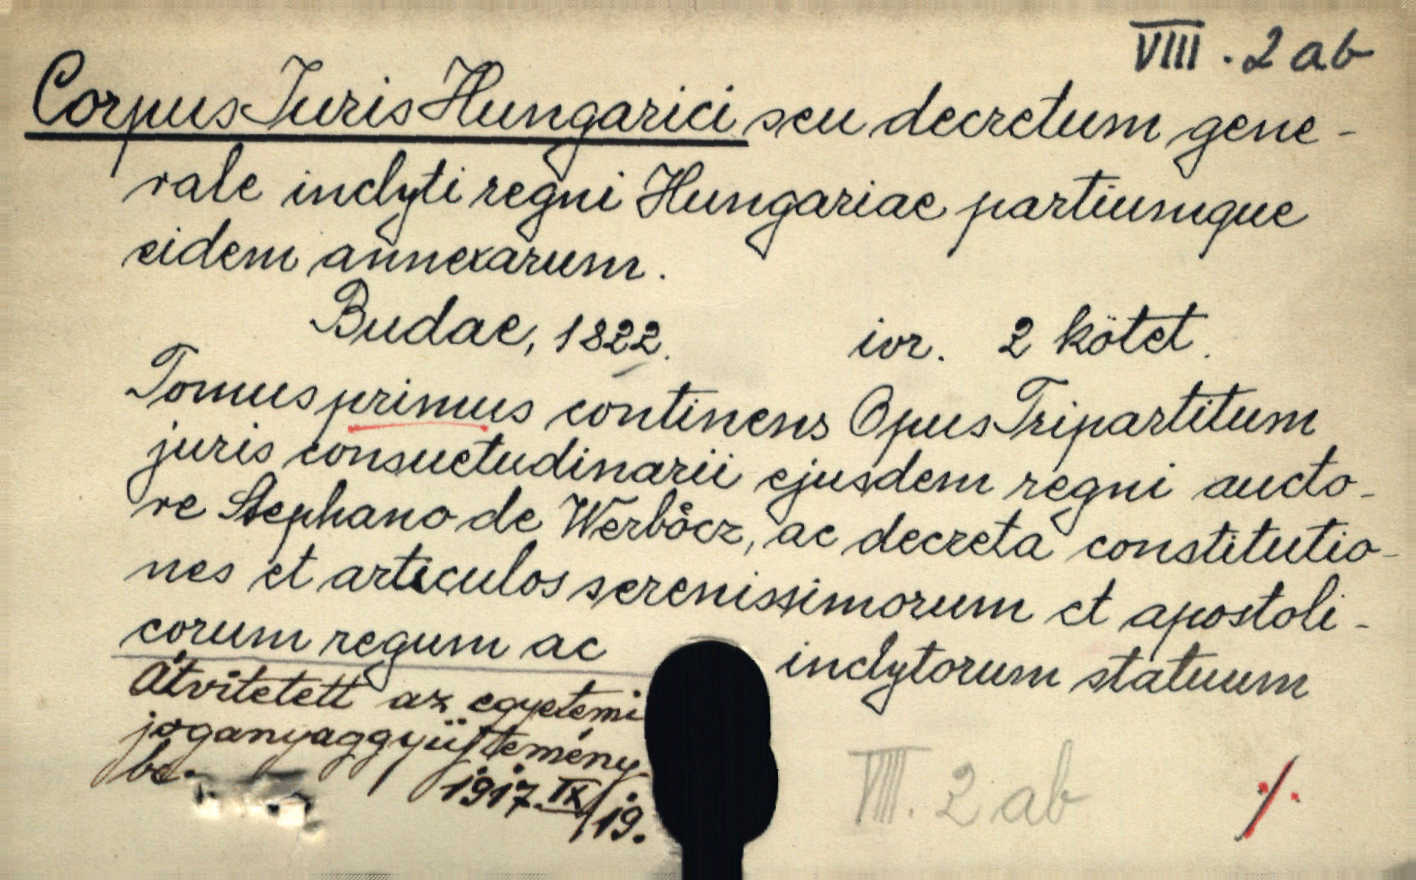 VIII. 2 ab
Corpus Juris Hungarici seu decretum gene-
rale inclyti regni Hungariae partiumque
eidem annexarum.
Budae, 1822. ivr. 2 kötet.
Tomus primus continens Opus Tripartitum
juris consuetudinarii ejusdem regni aucto-
re Stephano de Werbőcz, ac decreta constitutio-
nes et articulos serenissimorum et apostoli-
corum regum ac inclytorum statuum
Átvitetett az egyetemi
joganyaggyüjtemény
be.
1917 IX/19.
VIII. 2 ab
./.